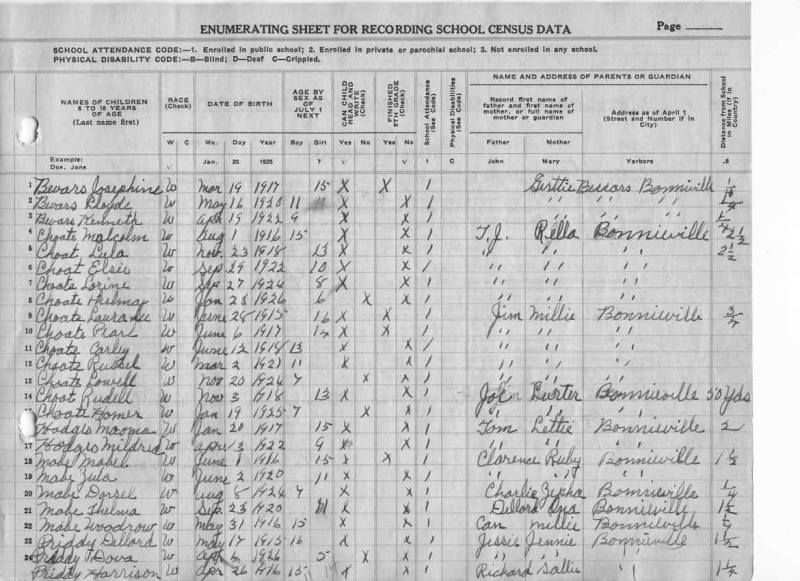 ENUMERATING SHEET FOR RECORDING SCHOOL CENSUS DATA Page
SCHOOL ATTENDANCE CODE:—1. Enrolled in public school; 2. Enrolled in private or parochial school; 3. Not enrolled in any school.
PHYSICAL DISABILITY CODE:—B—Blind; D—Deaf C—Crippled.
NAMES OF CHILDREN 6 TO 18 YEARS OF AGE (Last name first) RACE (Check) DATE OF BIRTH AGE BY SEX AS OF JULY 1 NEXT CAN CHILD READ AND WRITE (Check) FINISHED 8TH GRADE (Check) School Attendance (See Code) Physical Disabilities (See Code) NAME AND ADDRESS OF PARENTS OR GUARDIAN Distance from School in Miles (if in Country)
Record first name of father and first name of mother, or full name of mother or guardian Address as of April 1 (Street and Number if in City)
W C Mo. Day Year Boy Girl Yes No Yes No Father Mother
Example: Doe, Jane Jan. 20 1925 7 √ √ 1 C John Mary Yarboro .5
1 Bevars Josephine W Mar 19 1917 15 X X 1 Girttie Bonnieville
2 Bevars W May 16 1920 11 X X 1 " " "
3 Bevars Kenneth W Apr 19 1922 9 X X 1 " " "
4 Choate Malcolm W Aug 1 1916 15 X X 1 T.J. Rella Bonnieville 2 1/2
5 Choat Lula W Nov 23 1918 13 X X 1 " " " 2 1/2
6 Choat Elsie W Sep 29 1922 10 X X 1 " " "
7 Choate Lorine W Sep 27 1924 8 X X 1 " " "
8 Choate Thelma W Jan 28 1926 6 X X 1 " " "
9 Choate W June 28 1915 16 X X 1 Jim Millie Bonnieville 3/4
10 Choate Pearl W June 6 1917 14 X X 1 " " "
11 Choate Carley W June 12 1918 13 X X 1 " " "
12 Choate Russel W Mar 2 1921 11 X X 1 " " "
13 Choate Lowell W Nov 20 1924 7 X X 1 " " "
14 Choat Rudell W Nov 3 1918 13 X X 1 Joe Bonnieville 50 Yds
Choate Homer W Jan 19 1925 7 X X 1 " " "
Hodges W Jan 20 1917 15 X X 1 Tom Lettie Bonnieville 2
17 Hodges Mildred W Apr 3 1922 9 X X 1 " " "
18 Mabe Mabel W June 1 1916 15 X X 1 Clarence Ruby Bonnieville 1 1/2
19 Mabe Zula W June 2 1920 11 X X 1 " " "
20 Mabe Dorsel W Aug 8 1924 7 X X 1 Charlie Bonnieville 1/4
21 Mabe Thelma W Sep. 23 1920 11 X X 1 Dellard Ona Bonnieville
22 Mabe Woodrow W May 31 1916 15 X X 1 Millie Bonnieville
23 Priddy Dellard W May 17 1915 16 X X 1 Jessie Jennie Bonnieville
24 Priddy Dova W Apr 6 1926 5 X X 1 " " "
Priddy Harrison W Apr 26 1916 15 X X 1 Richard Sallie "